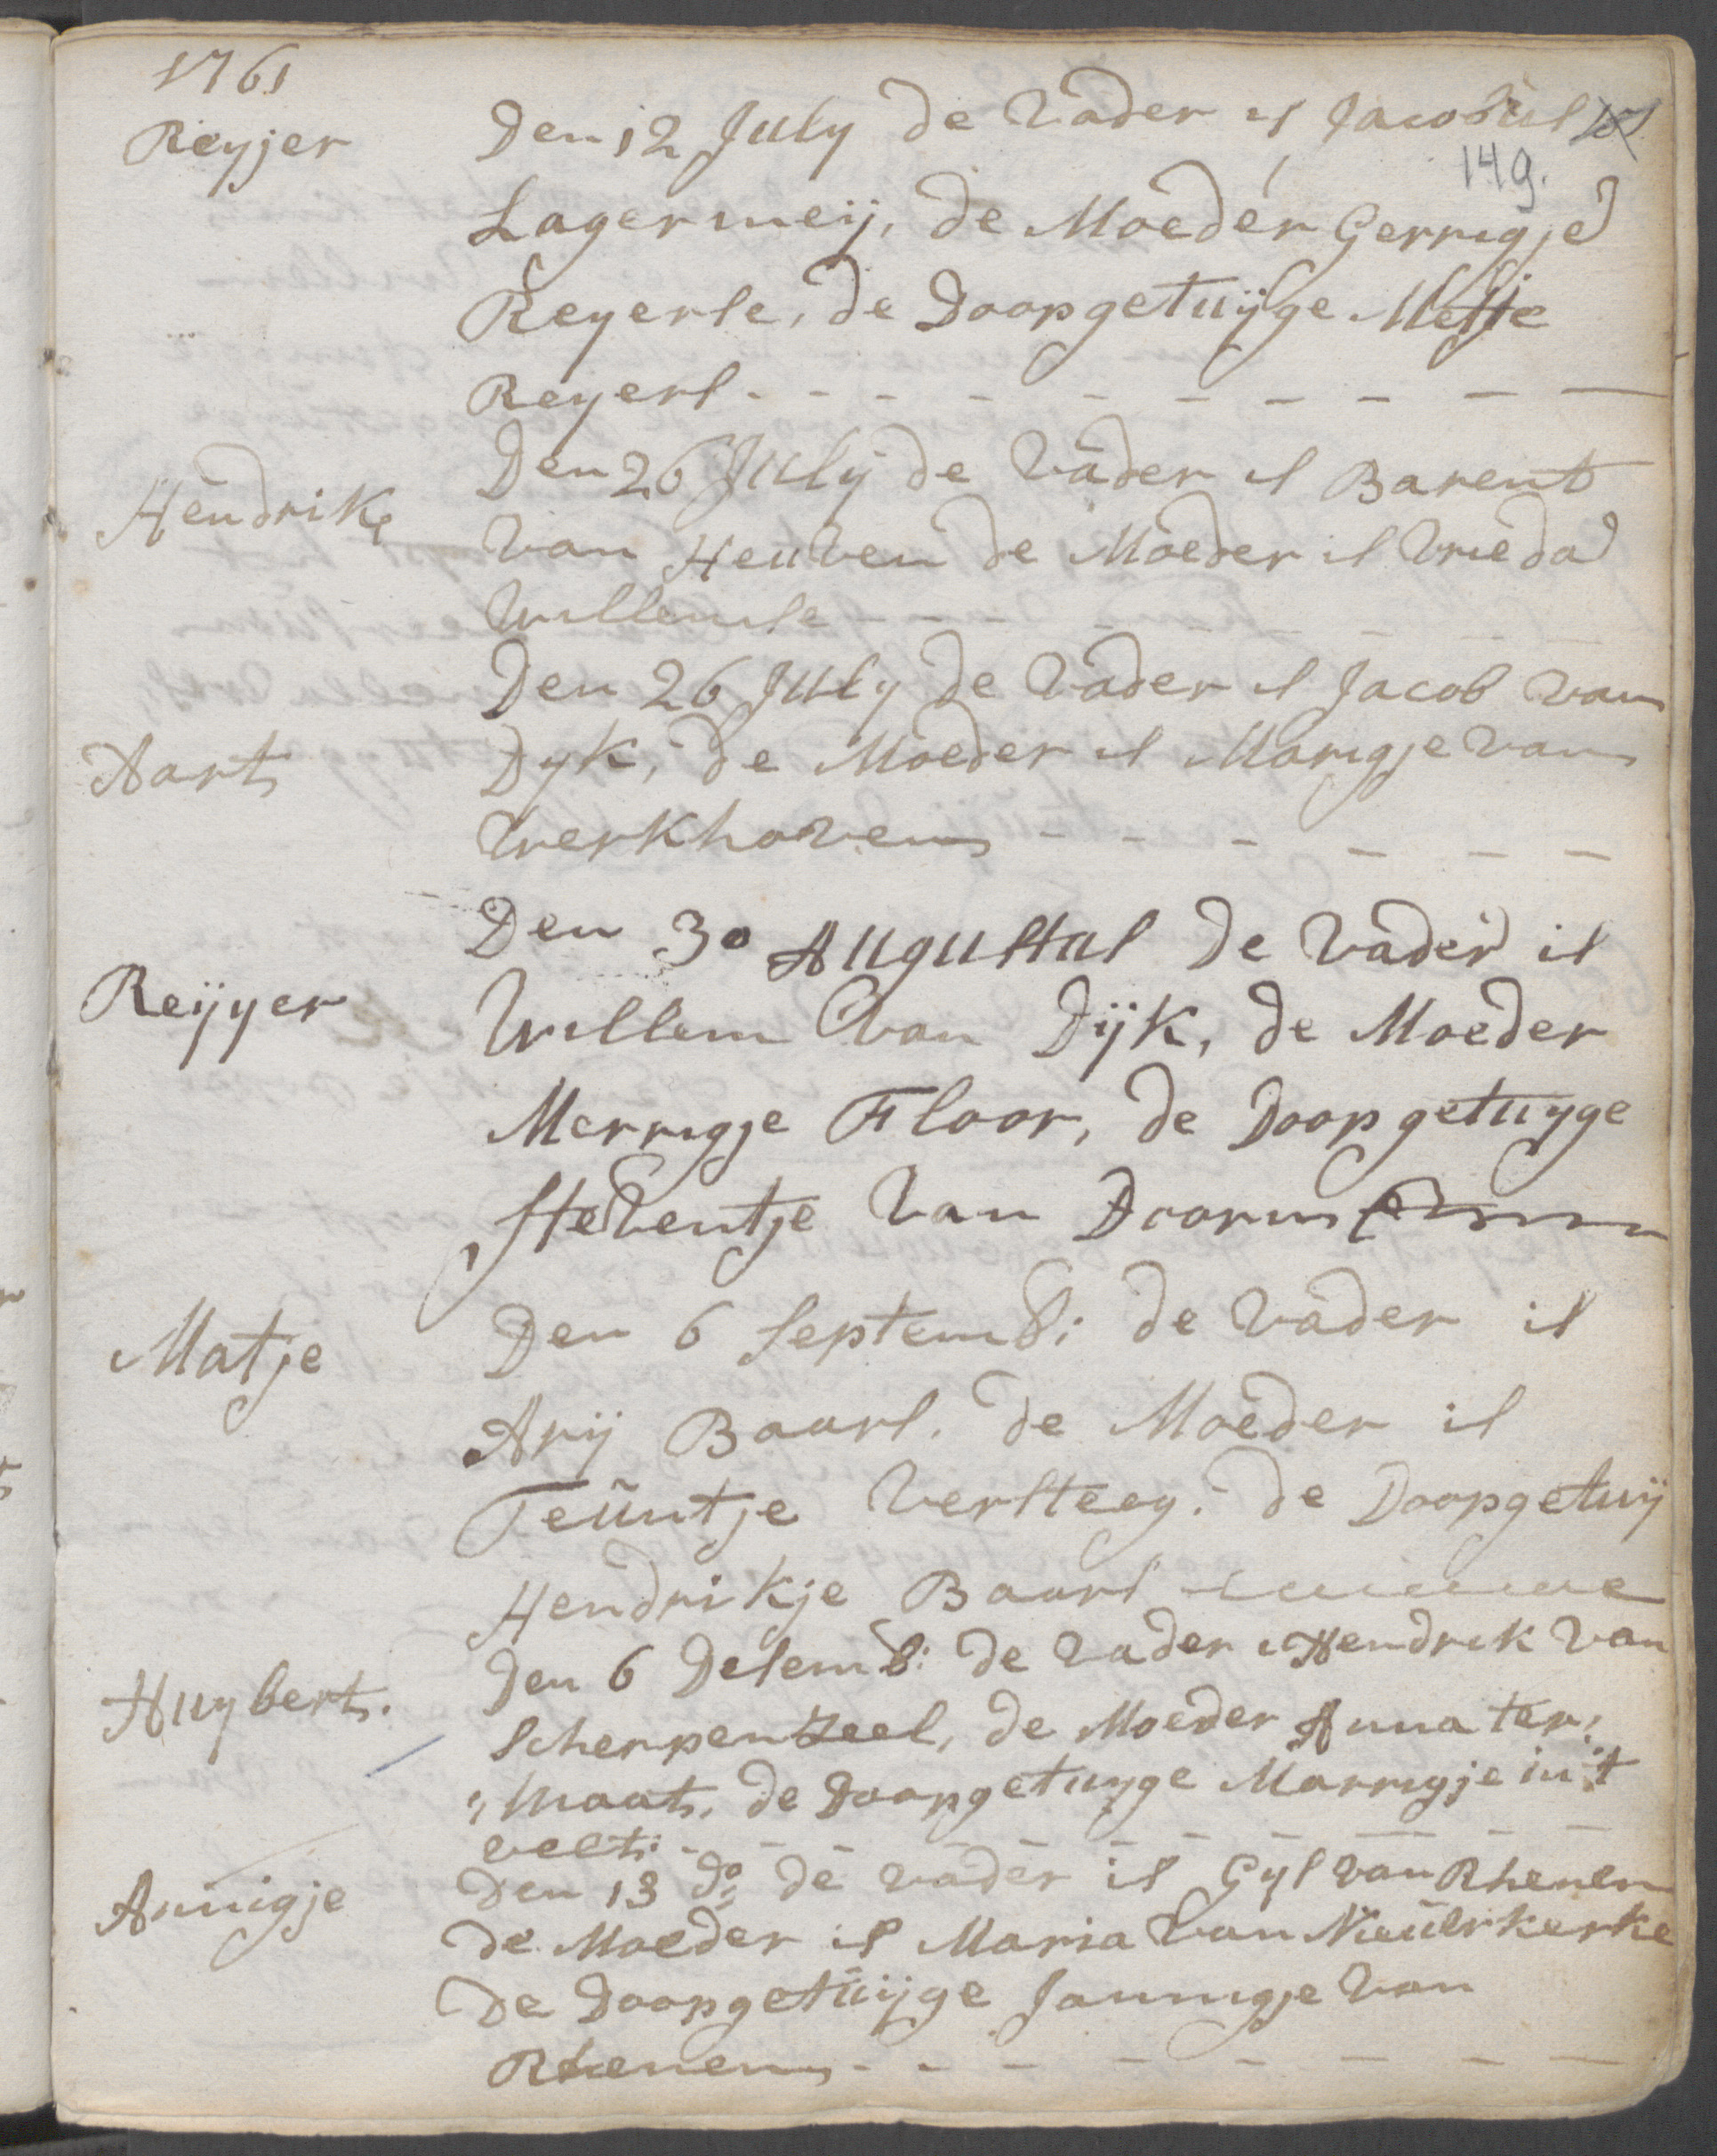 1761
Reyjer Den 12 July de Vader is Jacobus
149.
Lagermeij, de Moeder Gerrigje
Reyerse, de Doopgetuijge Metje
Reyers - - - - - - - - -
Hendrik Den 26 July de Vader is Barent
van Heuven de Moeder is Vrieda
Willemse - - - - - - - -
Den 26 July de Vader is Jacob van
Aart Dyk, de Moeder is Marigje van
Werkhoven - - - - - -
Den 30 Augustus de Vader is
Reijyer Willem van Dijk, de Moeder
Merrigje Floor, de Doopgetuyge
Steventje van Doorn
Matje Den 6 Septemb: de Vader is
Arij Baars. de Moeder is
Teuntje Versteeg. de Doopgetuij
Hendrikje Baars
Den 6 Desemb: de Vader Hendrik van
Huybert. Scherpenzeel, de Moeder Anna ter:
:maat, de Doopgetuyge Marrigje in't
velt: - - - - - - - -
Annigje Den 13 do: de Vader is Gys van Rhenen
de Moeder is Maria van Nieuwkerke
De Doopgetuijge Jannigje van
Rhenen - - - - - - -